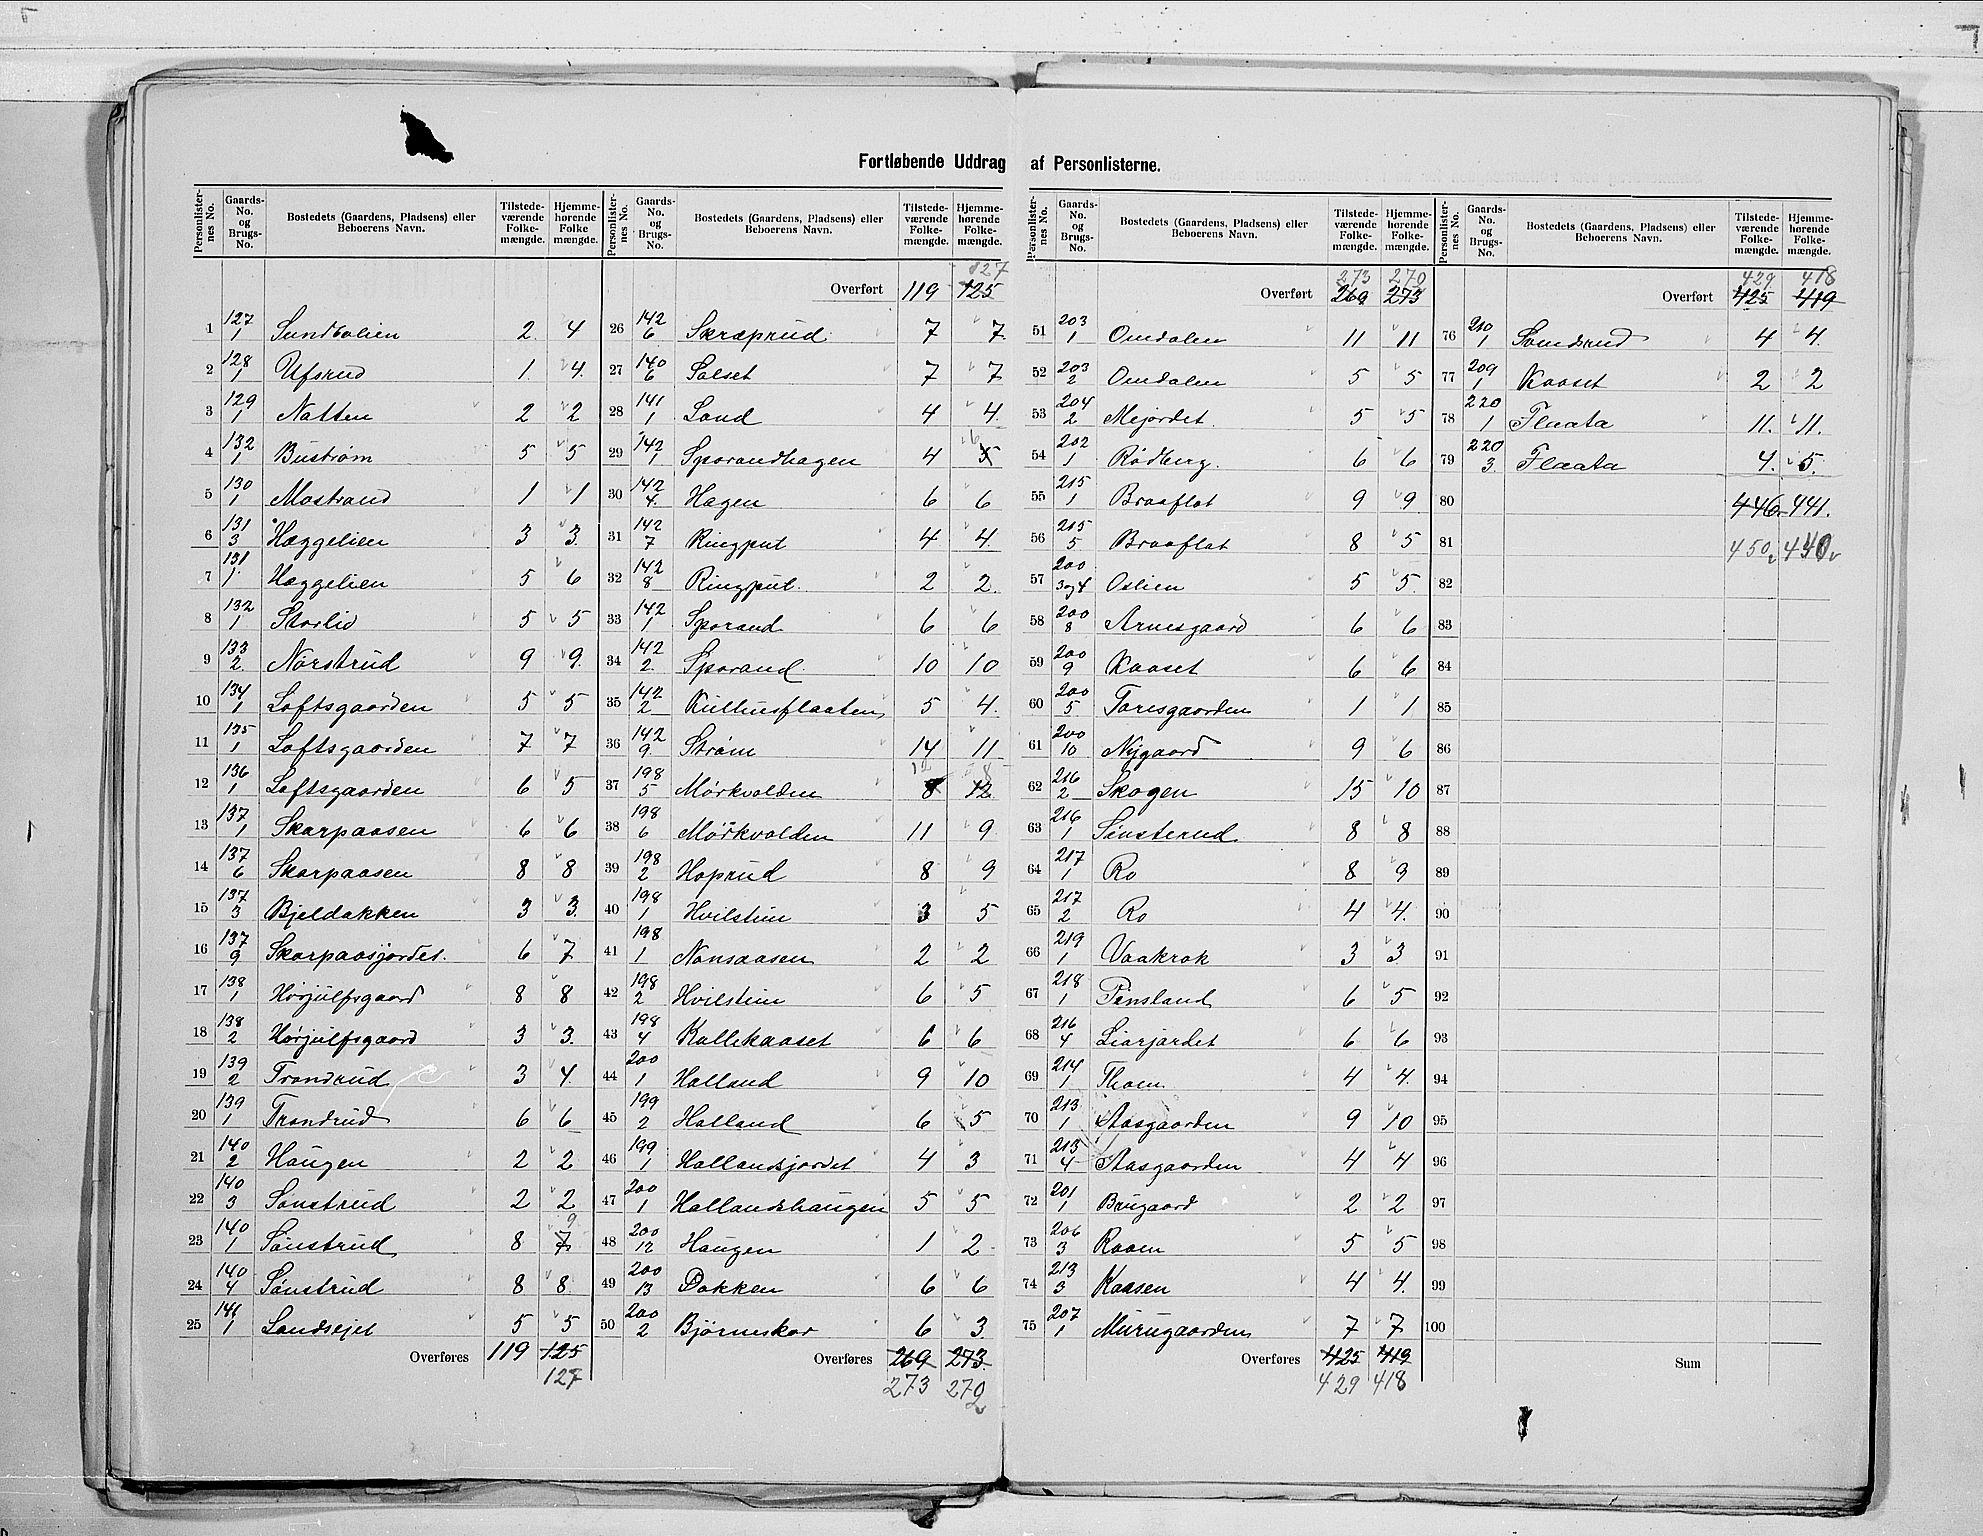 Fortløbende Uddrag af Personlisterne.
Personlister-nes No. Gaards-No. og Brugs-No. Bostedets (Gaardens, Pladsens) eller Beboerens Navn. Tilstede-værende Folke-mængde. Hjemme-hørende Folke mængde.
1 127/1 Sundbolien 2 4
2 128/1 Ufsrud 1 4
3 129/1 Natten 2 2
4 132/1 Bustrøm 5 5
5 130/1 Mostrand 1 1
6 131/3 Hæggelien 3 3
7 131/1 Hæggelien 5 6
8 132/1 Storlid 5 5
9 133/2 Nørstrud 9 9
10 134/1 Loftsgaarden 5 5
11 135/1 Loftsgaarden 7 7
12 136/1 Loftsgaarden 6 5
13 137/1 Skarpaasen 6 6
14 137/6 Skarpaasen 8 8
15 137/3 Bjeldakken 3 3
16 137/9 Skarpaasjordet. 6 7
17 138/1 Hørjulfsgaard 8 8
18 138/2 Hørjulfsgaard 3 3
19 139/2 Trondrud 3 4
20 139/1 Trondrud 6 6
21 140/2 Haugen 2 2
22 140/3 Sønstrud 2 2
23 140/1 Sønstrud 8 7 9
24 140/4 Sønstrud 8 8
25 141/1 Landsejet 5 5
Overføres 119 125
127
Personlister-nes No. Gaards-No. og Brugs-No. Bostedets (Gaardens, Pladsens) eller Beboerens Navn. Tilstede-værende Folke-mængde. Hjemme-hørende Folke-mængde.
127
Overført 119 125
26 142/6 Skræprud 7 7
27 140/6 Solset 7 7
28 141/1 Land 4 4
29 142/1 Sporandhagen 4 5 6
30 142/4 Hagen 6 6
31 142/7 Ringput 4 4
32 142/8 Ringput 2 2
33 142/1 Sporand 6 6
34 142/2 Sporand 10 10
35 142/2 Kulhusflaaten 5 4
36 142/9 Strøm 14 11
37 198/5 Mørkvolden 8 12 12 8
38 198/6 Mørkvolden 11 9
39 198/2 Hoprud 8 9
40 198/1 Hvilstein 3 5
41 198/1 Nonsaasen 2 2
42 198/2 Hvilstein 6 5
43 198/4 Kallekaaset 6 6
44 200/1 Halland 9 10
45 199/2 Halland 6 5
46 199/1 Hallandsjordet 4 3
47 200/1 Hallandshaugen 5 5
48 200/12 Haugen 1 2
49 200/13 Dokken 6 6
50 200/2 Bjørneskar 6 3
Overføres 269 273
273 270
Personlister-nes No. Gaards-No. og Brugs-No. Bostedets (Gaardens, Pladsens) eller Beboerens Navn. Tilstede-værende Folke-mængde. Hjemme-hørende Folke-mængde.
273 270
Overført 269 273
51 203/1 Omdalen 11 11
52 203/2 Omdalen 5 5
53 204/2 Mejordet. 5 5
54 202/1 Rødberg. 6 6
55 215/1 Braaflat 9 9
56 215/5 Braaflat 8 5
57 200/3og4 Oslien 5 5
58 200/8 Arnesgaard 6 6
59 200/9 Kaaset 6 6
60 200/5 Toresgaarden 1 1
61 200/10 Nygaard 9 6
62 216/2 Skogen 15 10
63 216/1 Sønsterud 8 8
64 217/1 Ro 8 9
65 217/2 Ro 4 4
66 219/1 Vaakrak 3 3
67 218/1 Tinsland 6 5
68 216/4 Liarjordet 6 6
69 214/1 Thoen 4 4
70 213/1 Aasgaarden 9 10
71 213/4 Aasgaarden 4 4
72 201/1 Brugaard 2 2
73 206/3 Raaen 5 5
74 213/3 Kaasen 4 4
75 207/1 Murugaarden 7 7
Overføres 425 419
429 418
Personlister-nes No. Gaards-No. og Brugs-No. Bostedets (Gaardens, Pladsens) eller Beboerens Navn. Tilstede-værende Folke-mængde. Hjemme-hørende Folke-mængde.
429 418
Overført 425 419
76 210/1 Somdrud 4 4
77 209/1 Kaaset 2 2
78 220/1 Flaata 11 11
79 220/3 Flaata 4 5
80 446 441
81 450 440
82
83
84
85
86
87
88
89
90
91
92
93
94
95
96
97
98
99
100
Sum